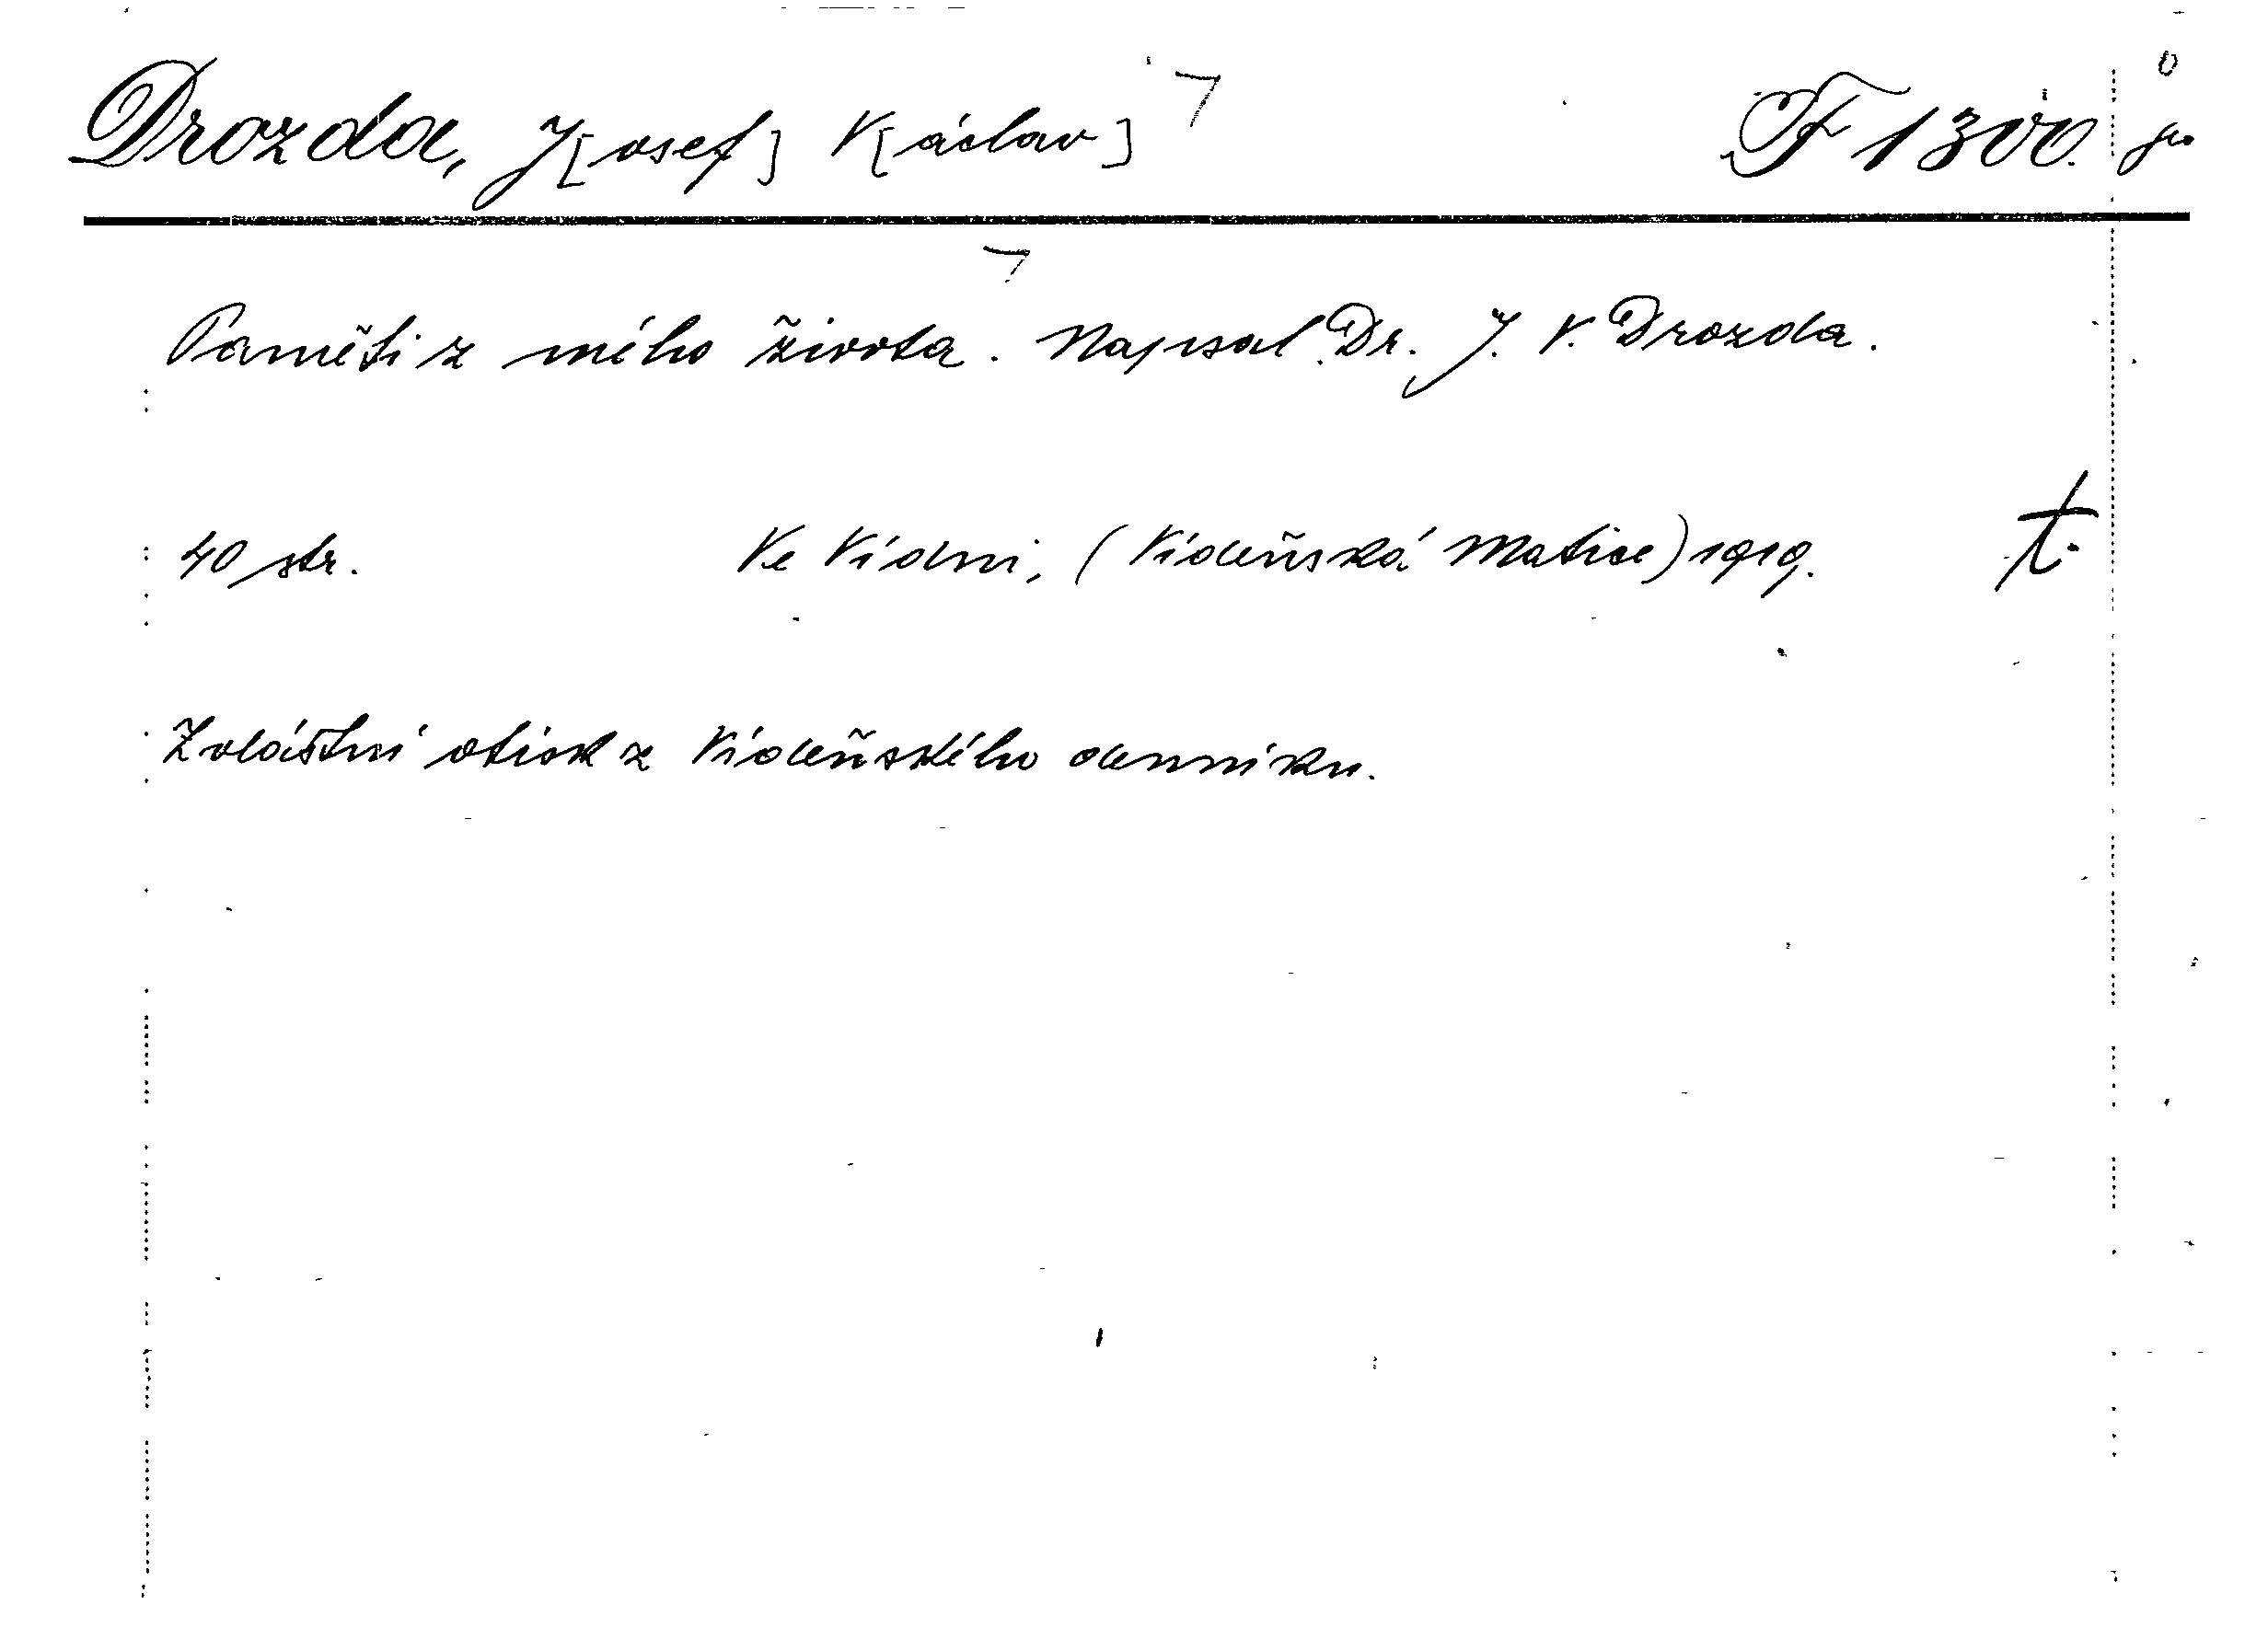 Drozda, J[osef] V[áclav] F 1300.
Paměti z mého života. Napsal Dr. J. V. Drozda.
40 str. Ve Vídni, (Vídeňská Matice) 1919. t.
Zvláštní otisk z Vídeňského denníku.